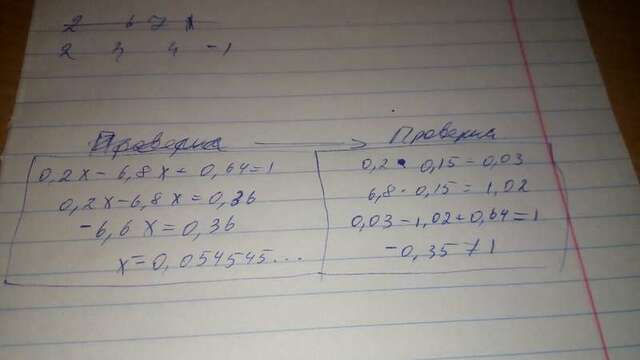 2 6 7 1
2 3 4 -1
Проверка → Проверка
0,2x - 6,8x + 0,64 = 1
0,2x - 6,8x = 0,36
-6,6x = 0,36
x = 0,054545...
0,2 · 0,15 = 0,03
6,8 · 0,15 = 1,02
0,03 - 1,02 + 0,64 = 1
-0,35 ≠ 1